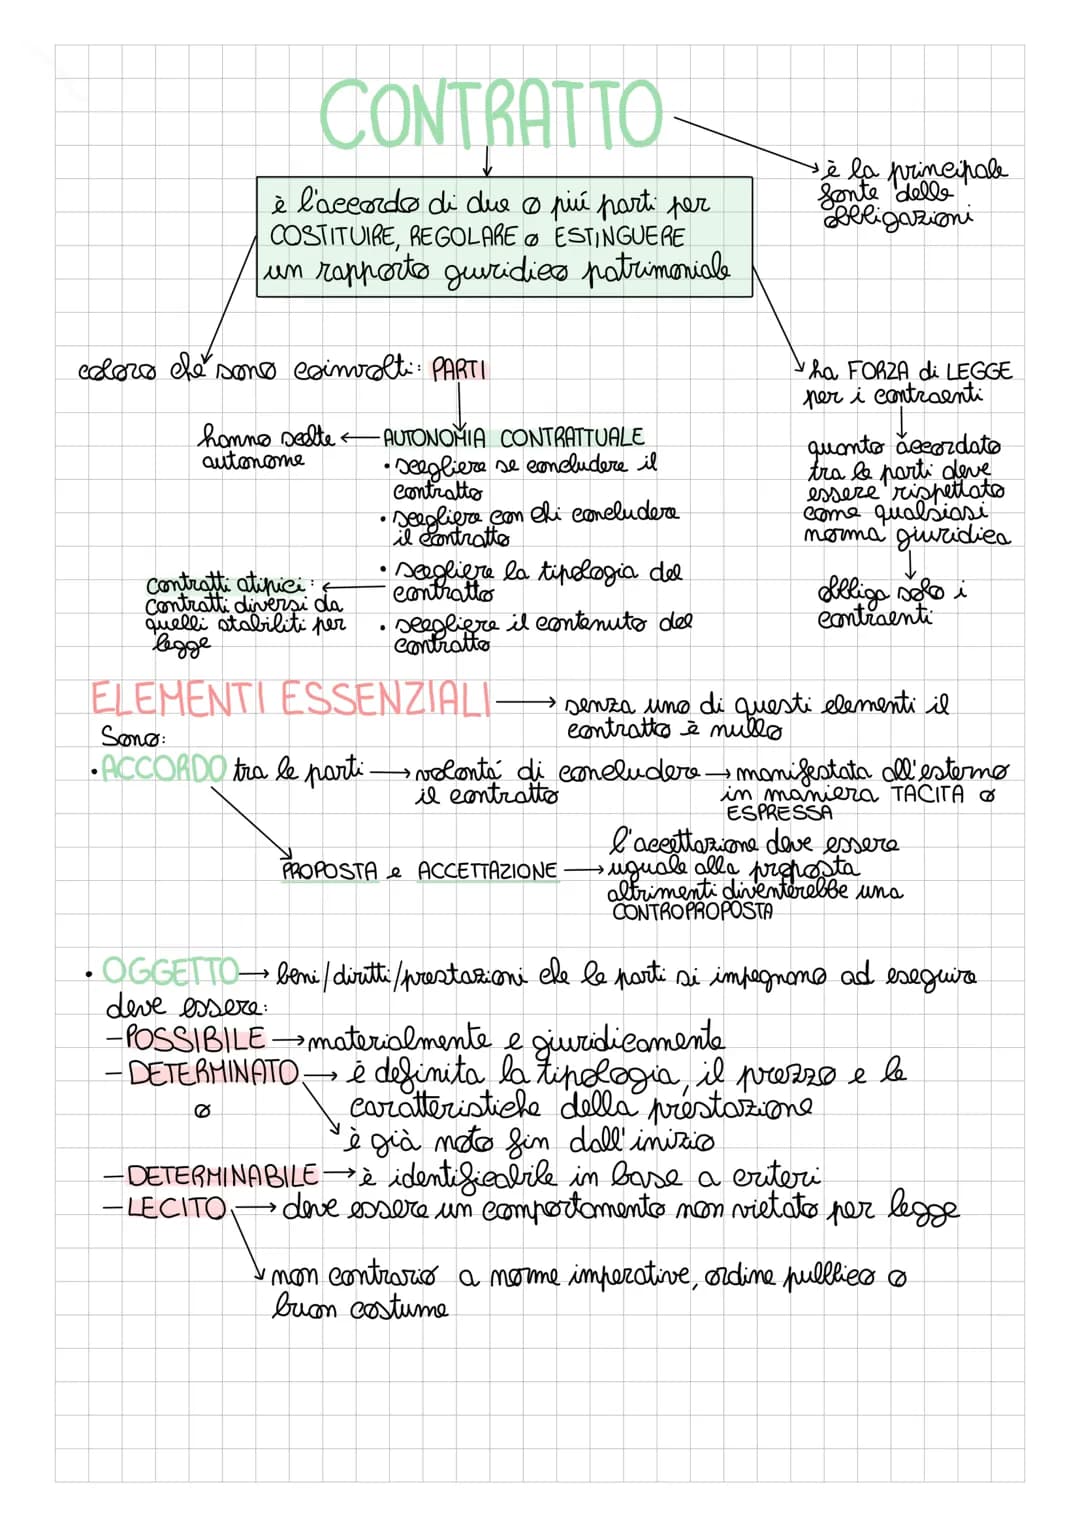 CONTRATTO
è la principale
fonte delle
obbligazioni
è l'accordo di due o piú parti per
COSTITUIRE, REGOLARE o ESTINGUERE
un rapporto giuridico patrimoniale
coloro che sono coinvolti: PARTI
ha FORZA di LEGGE
per i contraenti
hanno scelte
autonome
AUTONOMIA CONTRATTUALE
• scegliere se concludere il
contratto
• scegliere con chi concludere
il contratto
• scegliere la tipologia del
contratto
• scegliere il contenuto del
contratto
quanto accordato
tra le parti deve
essere rispettato
come qualsiasi
norma giuridica
obbliga solo i
contraenti
contratti atipici:
contratti diversi da
quelli stabiliti per
legge
ELEMENTI ESSENZIALI → senza uno di questi elementi il
contratto è nullo
Sono:
• ACCORDO tra le parti → volontá di concludere → manifestata all'esterno
il contratto
in maniera TACITA o
ESPRESSA
PROPOSTA e ACCETTAZIONE →
l'accettazione deve essere
uguale alla proposta
altrimenti diventerebbe una
CONTROPROPOSTA
• OGGETTO → beni/diritti/prestazioni che le parti si impegnano ad eseguire
deve essere:
- POSSIBILE → materialmente e giuridicamente
- DETERMINATO → è definita la tipologia, il prezzo e le
caratteristiche della prestazione
o
è già noto fin dall'inizio
- DETERMINABILE → è identificabile in base a criteri
- LECITO → deve essere un comportamento non vietato per legge
non contrario a norme imperative, ordine pubblico o
buon costume